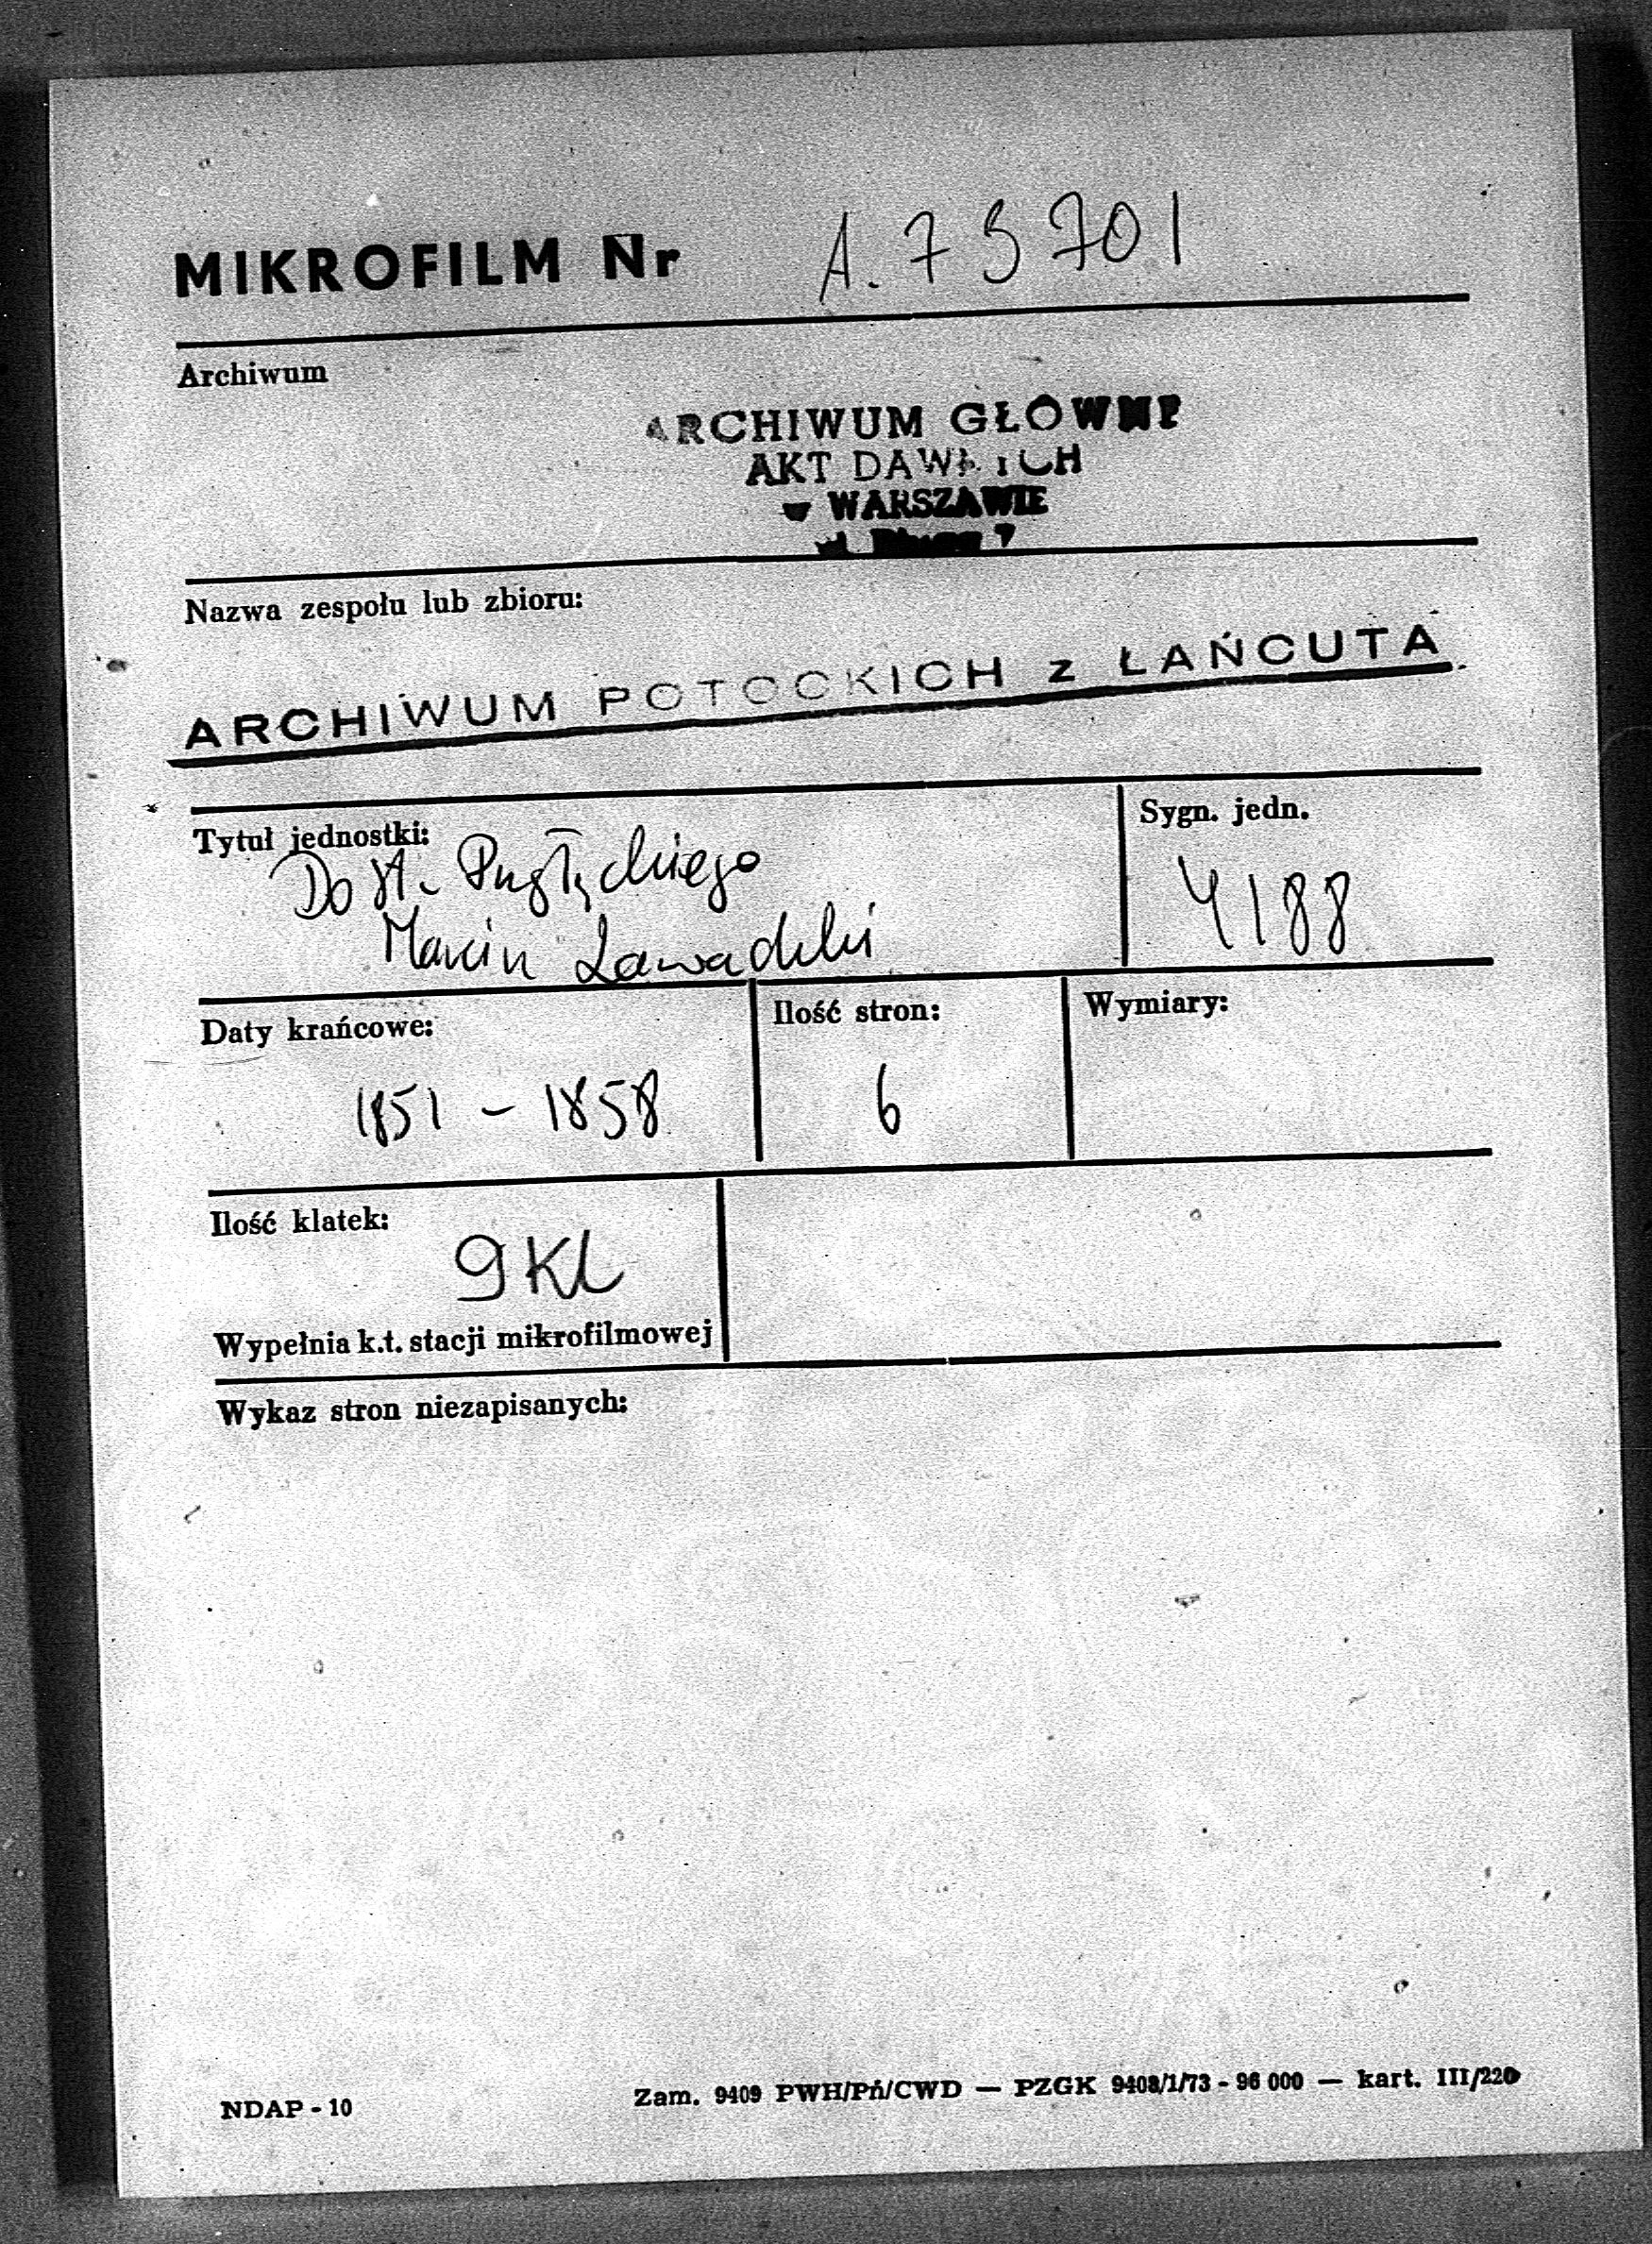 MIKROFILM Nr A. 75701
Archiwum
ARCHIWUM GŁÓWNE
AKT DAWNYCH
w WARSZAWIE
ul. Długa 7
Nazwa zespołu lub zbioru:
ARCHIWUM POTOCKICH z ŁAŃCUTA
Tytuł jednostki:
Sygn. jedn.
Do St.
Marcin Zawadzki
4188
Daty krańcowe:
Ilość stron:
Wymiary:
1851 - 1858
6
Ilość klatek:
9 Kl
Wypełnia k.t. stacji mikrofilmowej
Wykaz stron niezapisanych:
NDAP - 10
Zam. 9409 PWH/Pń/CWD — PZGK 9408/1/73 - 96 000 — kart. III/220